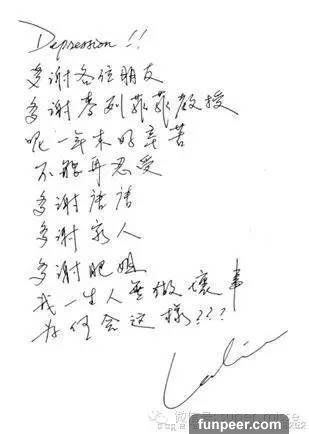 Depression!!
多谢各位朋友
多谢麦列菲菲教授
呢一年来好辛苦
不能再忍受
多谢唐唐
多谢家人
多谢肥姐
我一生人無做壞事
为何会这樣???
Leslie
funpeer.com